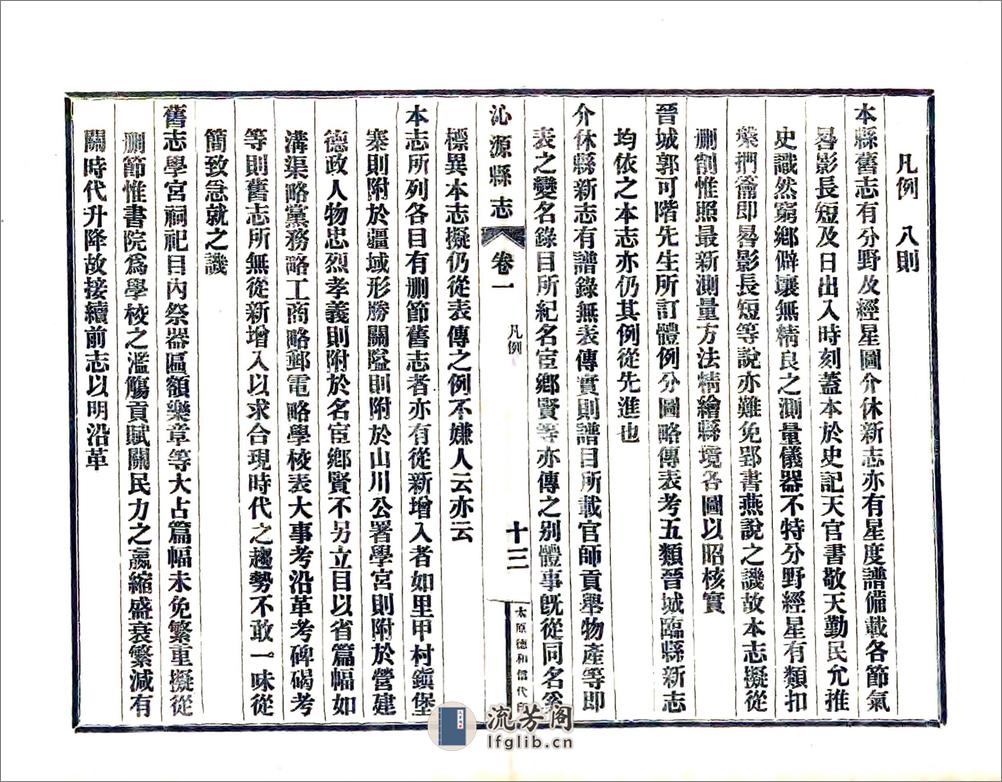 凡例　八則
本縣舊志有分野及經星圖介休新志亦有星度譜備載各節氣
晷影長短及日出入時刻蓋本於史記天官書敬天勤民允推
史識然窮鄉僻壤無精良之測量儀器不特分野經星有類扣
槃捫籥即晷影長短等說亦難免郢書燕說之譏故本志擬從
刪割惟照最新測量方法精繪縣境各圖以昭核實
晉城郭可階先生所訂體例分圖略傳表考五類晉城臨縣新志
均依之本志亦仍其例從先進也
介休縣新志有譜錄無表傳實則譜目所載官師貢舉物產等即
表之變名錄目所紀名宦鄉賢等亦傳之別體事旣從同名奚
沁源縣志
卷一
凡例
十三
太原德和信代印
標異本志擬仍從表傳之例不嫌人云亦云
本志所列各目有刪節舊志者亦有從新增入者如里甲村鎭堡
寨則附於疆域形勝關隘則附於山川公署學宮則附於營建
德政人物忠烈孝義則附於名宦鄉賢不另立目以省篇幅如
溝渠略黨務略工商略郵電略學校表大事考沿革考碑碣考
等則舊志所無從新增入以求合現時代之趨勢不敢一味從
簡致急就之譏
舊志學宮祠祀目內祭器區額樂章等大占篇幅未免繁重擬從
刪節惟書院爲學校之濫觴貢賦關民力之嬴縮盛衰繁減有
關時代升降故接續前志以明沿革
流芳阁
lfglib.cn